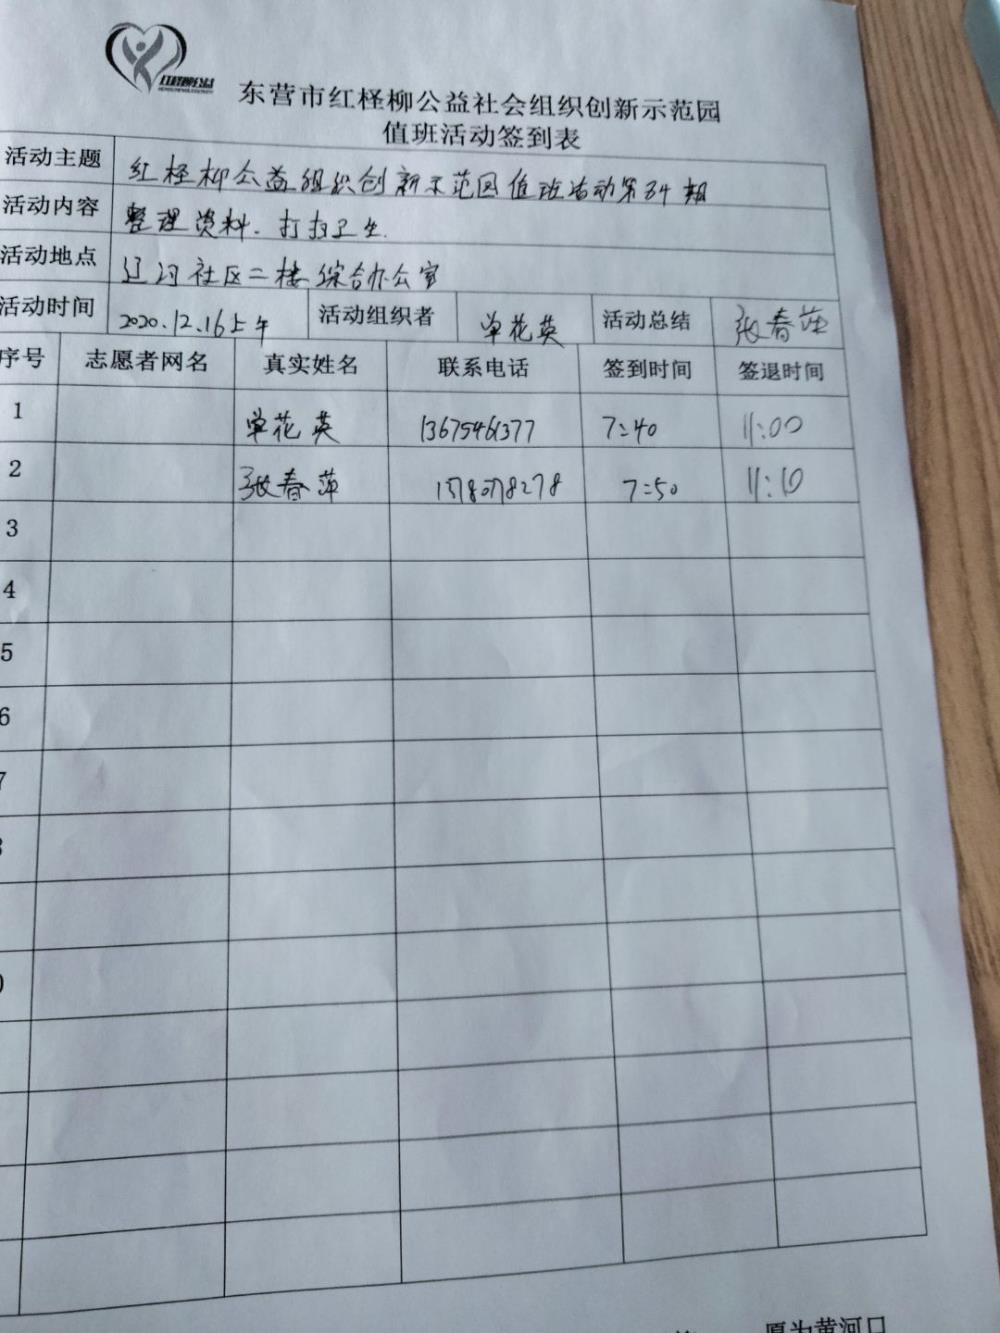 东营市红柽柳公益社会组织创新示范园
值班活动签到表
活动主题 红柽柳公益组织创新示范园值班活动第34期
活动内容 整理资料、打扫卫生.
活动地点 辽河社区二楼综合办公室
活动时间 2020.12.16上午 活动组织者 单花英 活动总结 张春萍
序号 志愿者网名 真实姓名 联系电话 签到时间 签退时间
1 单花英 13675461377 7:40 11:00
2 张春萍 7:50 11:10
3
4
5
6
7
愿为黄河口